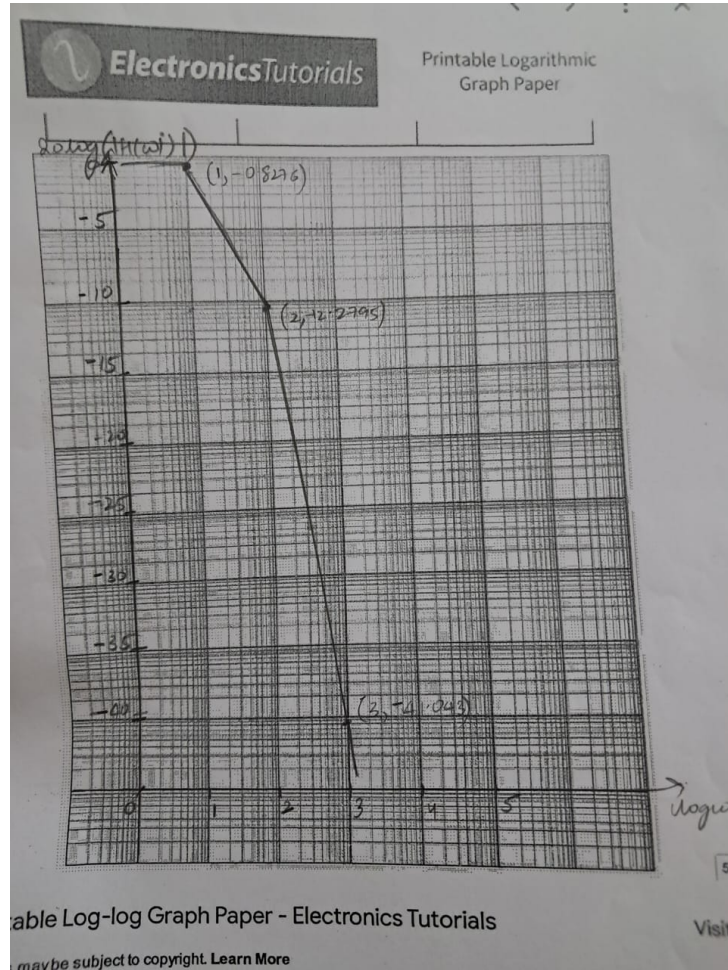 ElectronicsTutorials
Printable Logarithmic
Graph Paper
20log(|H(ωj)|)
0
(1,-0.8276)
-5
-10
(2,-12.2795)
-15
-20
-25
-30
-35
-40
0
1
2
3
4
5
able Log-log Graph Paper - Electronics Tutorials
Visi
maybe subject to copyright. Learn More